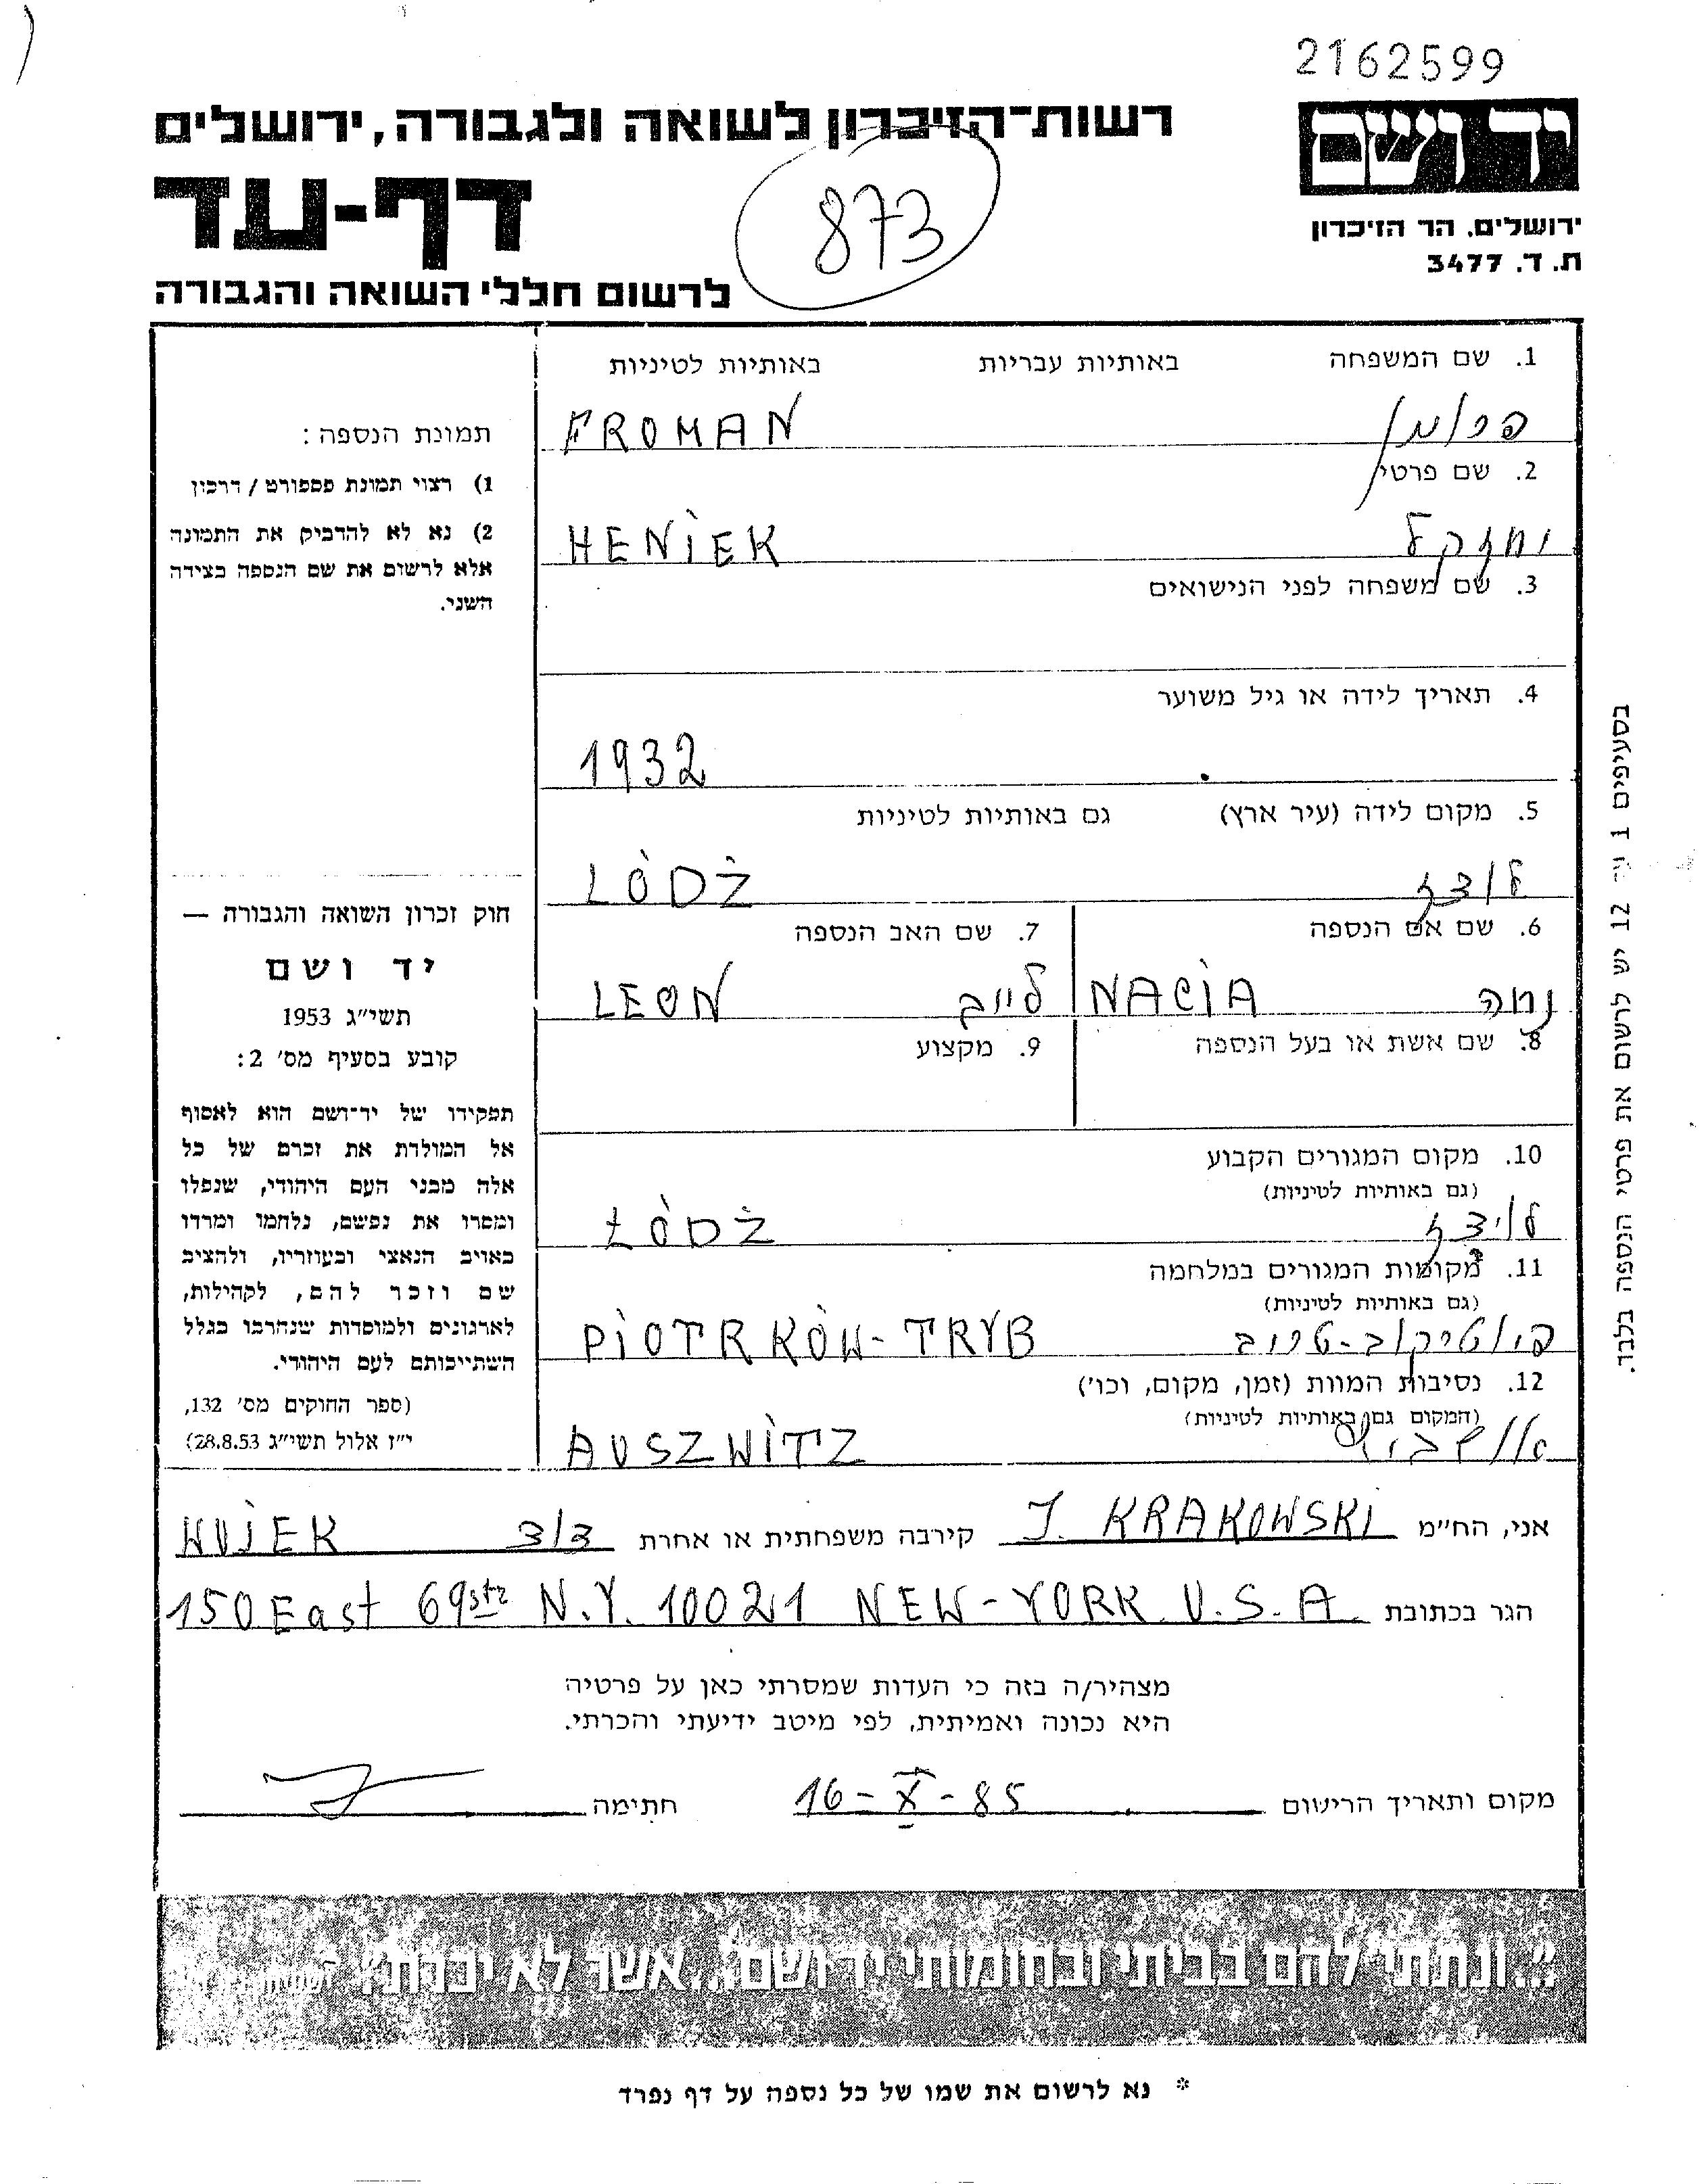 2162599
רשות־הזיכרון לשואה ולגבורה, ירושלים
יד ושם
דף-עד
873
ירושלים, הר הזיכרון
ת. ד. 3477
לרשום חללי השואה והגבורה
1. שם המשפחה באותיות עבריות באותיות לטיניות
פרומן FROMAN
2. שם פרטי
יחזקל HENIEK
3. שם משפחה לפני הנישואים
4. תאריך לידה או גיל משוער
1932
5. מקום לידה (עיר ארץ) גם באותיות לטיניות
לודז LÓDŻ
6. שם אם הנספה 7. שם האב הנספה
NACIA לייב LEON
8. שם אשת או בעל הנספה 9. מקצוע
10. מקום המגורים הקבוע
(גם באותיות לטיניות)
ŁÓDŻ
11. מקומות המגורים במלחמה
(גם באותיות לטיניות)
PIOTRKÓW-TRYB
12. נסיבות המוות (זמן, מקום, וכו')
(המקום גם באותיות לטיניות)
AUSZWITZ
תמונת הנספה:
1) רצוי תמונת פספורט / דרכון
2) נא לא להדביק את התמונה
אלא לרשום את שם הנספה בצידה
השני.
חוק זכרון השואה והגבורה —
יד ושם
תשי"ג 1953
קובע בסעיף מס' 2:
תפקידו של יד־ושם הוא לאסוף
אל המולדת את זכרם של כל
אלה מבני העם היהודי, שנפלו
ומסרו את נפשם, נלחמו ומרדו
באויב הנאצי ובעוזריו, ולהציב
שם וזכר להם, לקהילות,
לארגונים ולמוסדות שנחרבו בגלל
השתייכותם לעם היהודי.
(ספר החוקים מס' 132,
י"ז אלול תשי"ג 28.8.53)
בסעיפים 1 עד 12 יש לרשום את פרטי הנספה בלבד.
אני, הח"מ J. KRAKOWSKI קירבה משפחתית או אחרת דוד WUJEK
הגר בכתובת 150 East 69str N.Y. 10021 NEW-YORK U.S.A.
מצהיר/ה בזה כי העדות שמסרתי כאן על פרטיה
היא נכונה ואמיתית, לפי מיטב ידיעתי והכרתי.
מקום ותאריך הרישום 16-X-85 חתימה
"...ונתתי להם בביתי ובחומותי יד ושם... אשר לא יכרת"
* נא לרשום את שמו של כל נספה על דף נפרד